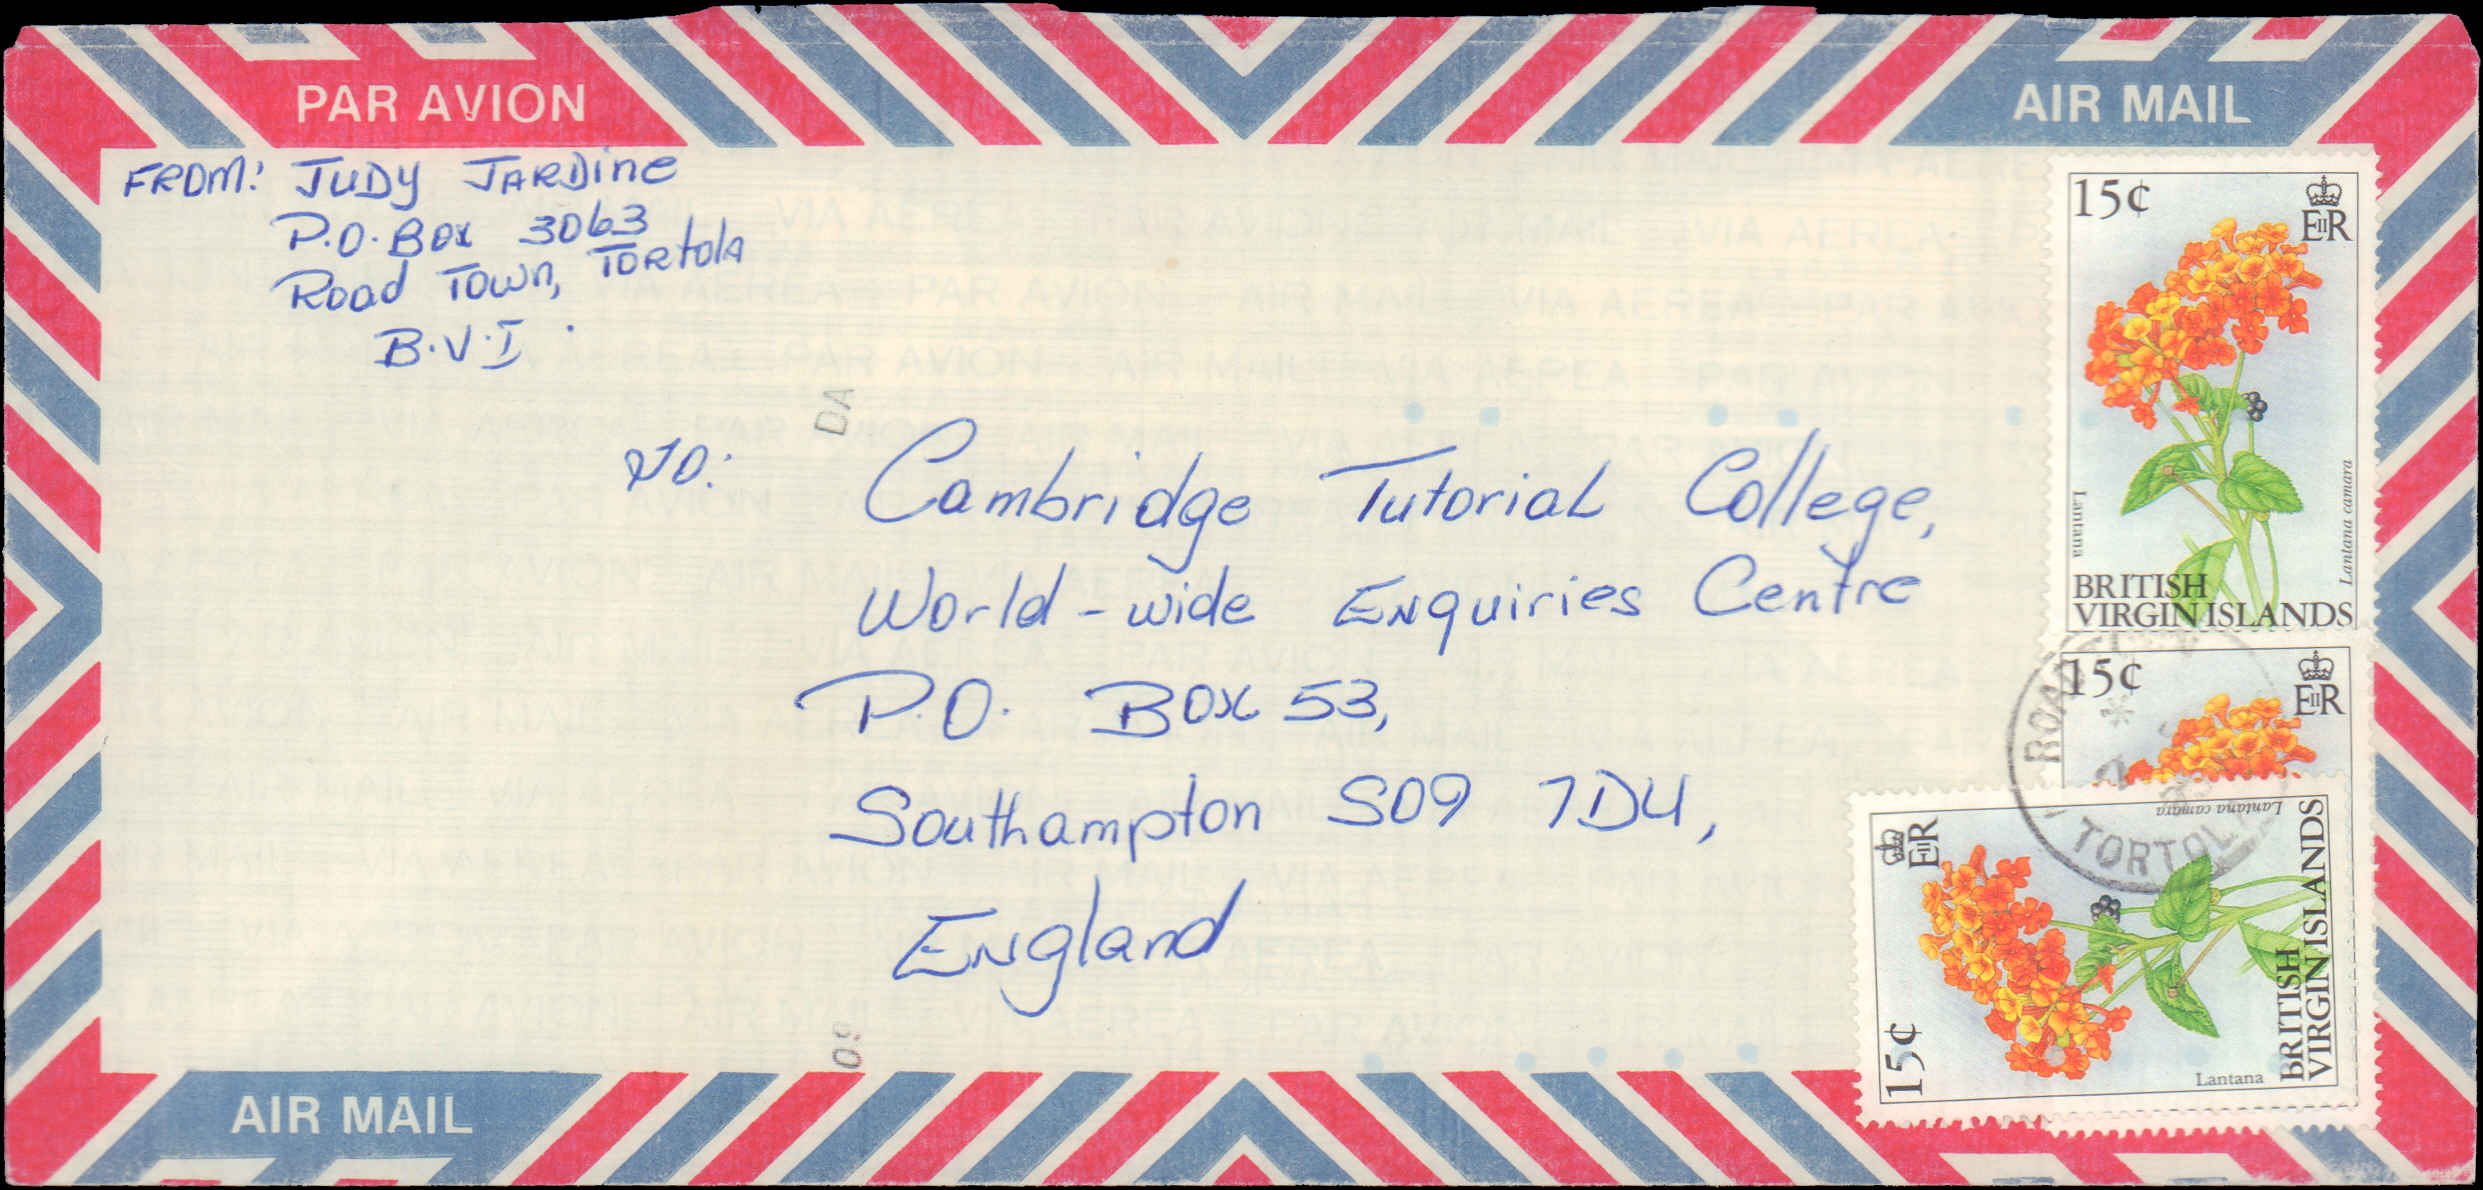 PAR AVION
AIR MAIL
FROM: JUDY JARDINE
P.O. BOX 3063
ROAD TOWN, TORTOLA
B.V.I.
TO:
Cambridge Tutorial College,
World-wide Enquiries Centre
P.O. Box 53,
Southampton SO9 7DU,
England
15¢
EIIR
Lantana
Lantana camara
BRITISH
VIRGIN ISLANDS
15¢
EIIR
ROAD
TORTOLA
15¢
EIIR
Lantana camara
Lantana
BRITISH
VIRGIN ISLANDS
DA
09
AIR MAIL